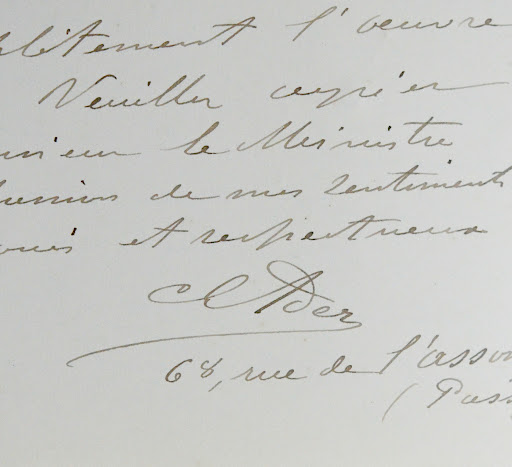 plètement l'œuvre
Veuillez agréer
nsieur le Ministre
pression de mes sentiments
oués et respectueux
Cl Ader
68, rue de l'assom
(Pass